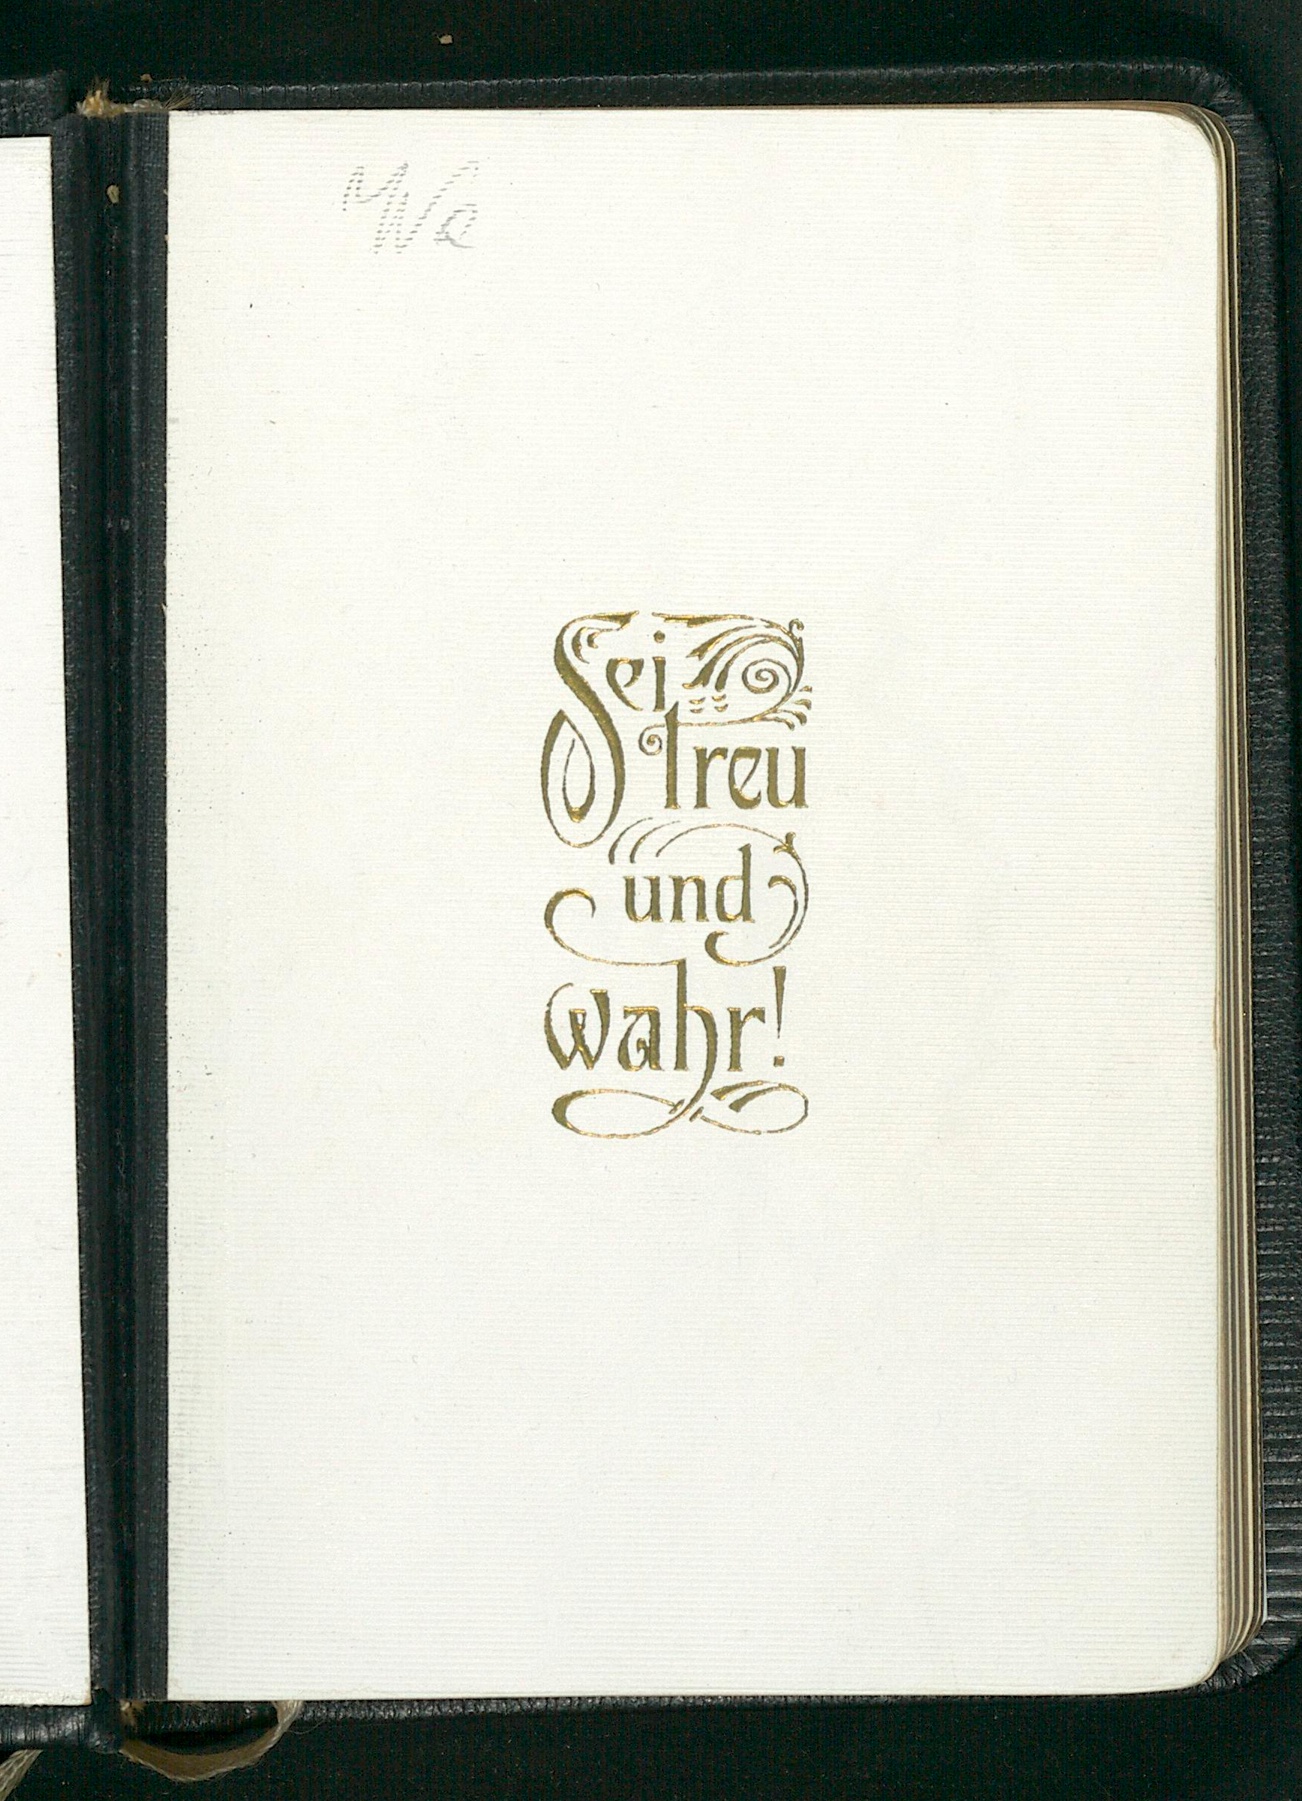 Sei
treu
und
wahr!